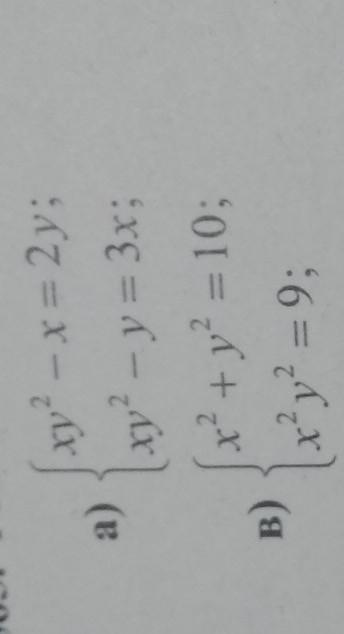 а) { xy² − x = 2y;
xy² − y = 3x;
в) { x² + y² = 10;
x²y² = 9;